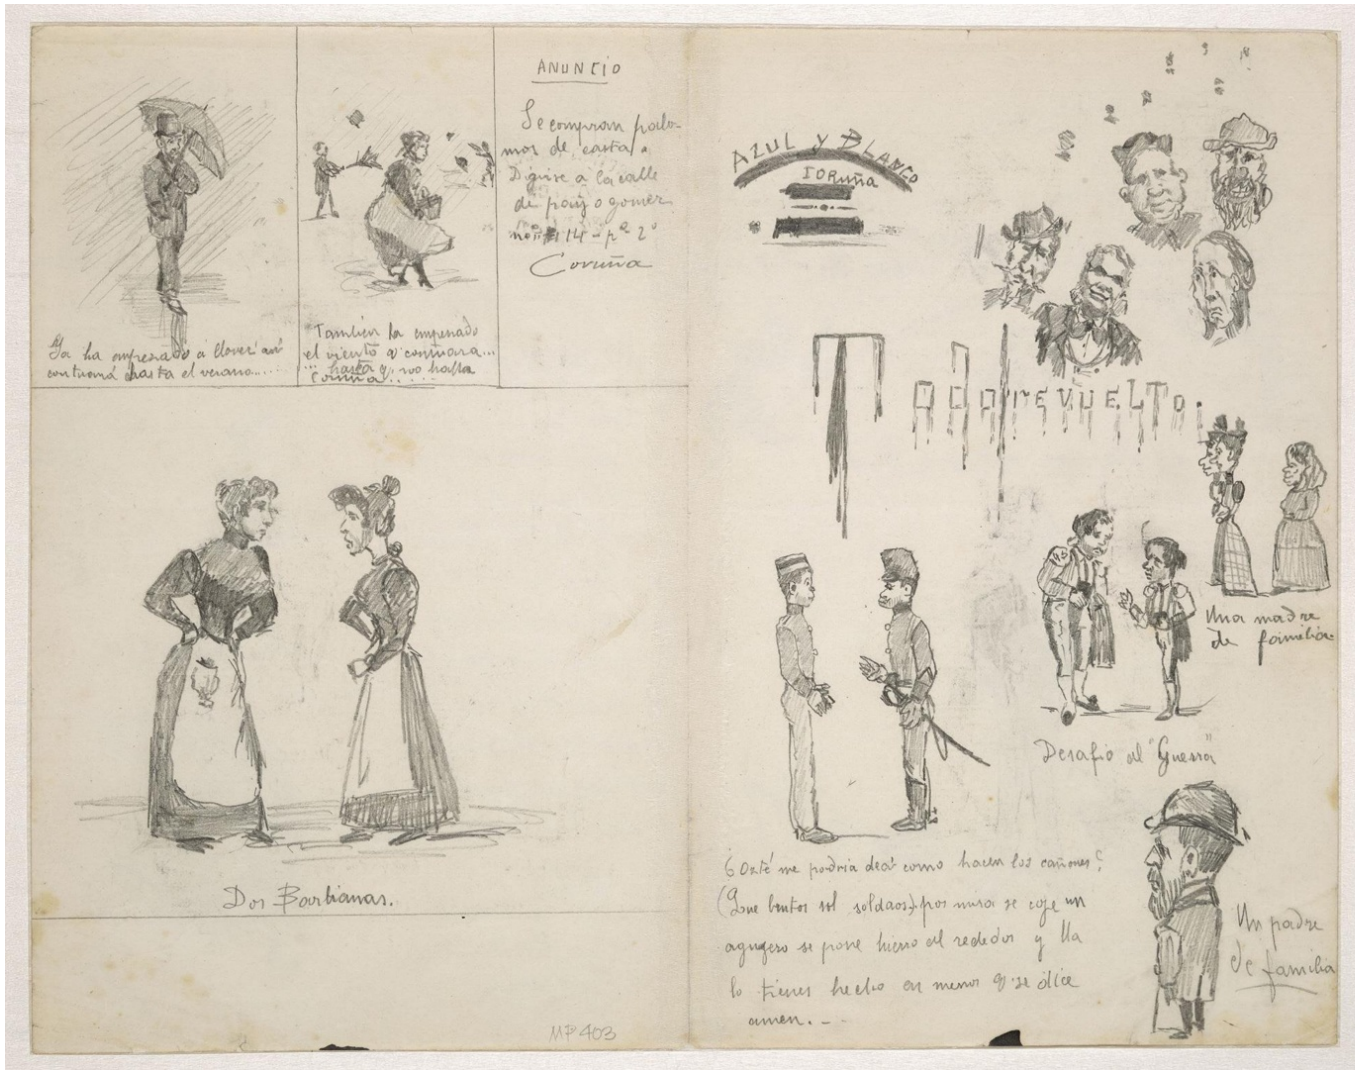 Ya ha empezado a llover! aun
continuará hasta el verano....
También ha empezado
el viento y continuara...
... hasta q. no halla
Coruña.....
ANUNCIO
Se compran palo-
mos de casta.
Dirigirse a la calle
de payo gomez
14 - pº 2º
Coruña
Dos Barbianas.
MP 403
AZUL y BLANCO
CORUÑA
TODO REVUELTO.
Una madre
de familia
Desafio al "Guerra"
¿Ozté me podria decí como hacen los cañones?
(Que brutos sol soldaos) pos mira se coje un
agugero se pone hierro al rededor y lla
lo tienes hecho en menos q. se dice
amen. -
Un padre
de familia